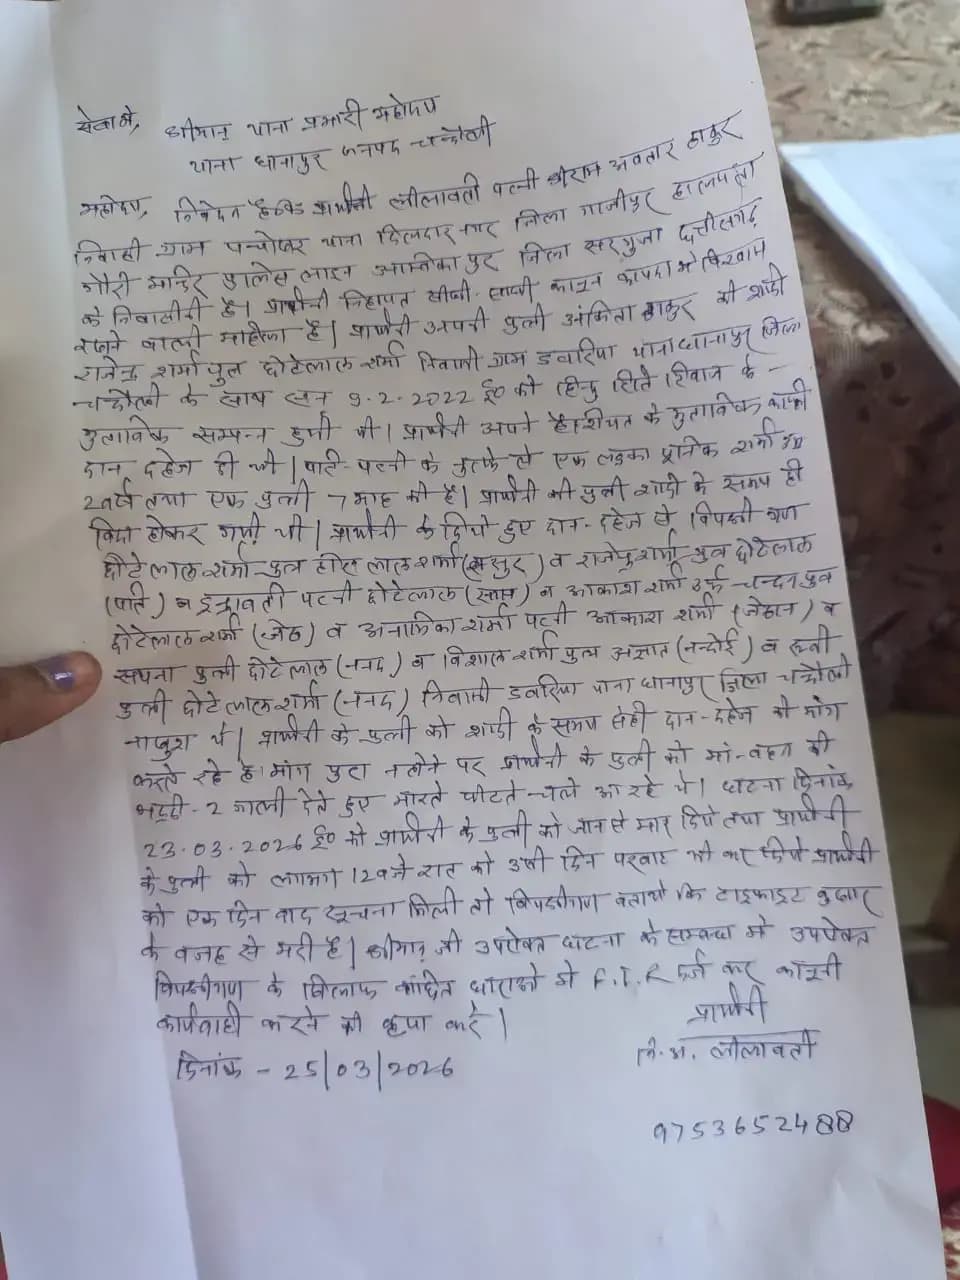 सेवा में, श्रीमान् थाना प्रभारी महोदय
थाना धानापुर जनपद चन्दौली
महोदय, निवेदन है कि प्रार्थिनी लीलावती पत्नी श्रीराम अवतार ठाकुर
निवासी ग्राम थाना दिलदारनगर जिला गाजीपुर हालपता
गौरी मन्दिर पुलिस लाइन अम्बिकापुर जिला सरगुजा छत्तीसगढ़
के निवासीनी है। प्रार्थिनी निहायत सीधी-साधी कानून कायदा में विश्वास
रखने वाली महिला है। प्रार्थिनी अपनी पुत्री अंकिता ठाकुर की शादी
राजेन्द्र शर्मा पुत्र छोटेलाल शर्मा निवासी ग्राम डवरिया थाना धानापुर जिला
चन्दौली के साथ सन 9.2.2022 ई० को हिन्दु रिति रिवाज के -
मुताबिक सम्पन्न हुयी थी। प्रार्थिनी अपने हैशियत के मुताबिक काफी
दान दहेज दी थी। पति-पत्नी के नुत्फे से एक लड़का शर्मा उम्र
2 वर्ष तथा एक पुत्री 7 माह की है। प्रार्थिनी की पुत्री शादी के समय ही
विदा होकर गयी थी। प्रार्थिनी के दिये हुए दान-दहेज से विपक्षी गण
छोटेलाल शर्मा पुत्र लाल शर्मा (ससुर) व राजेन्द्र शर्मा पुत्र छोटेलाल
(पति) व इन्द्रावती पत्नी छोटेलाल (सास) व आकाश शर्मा उर्फ चन्दन पुत्र
छोटेलाल शर्मा (जेठ) व अनामिका शर्मा पत्नी आकाश शर्मा (जेठान) व
सपना पुत्री छोटेलाल (ननद) व विशाल शर्मा पुत्र अज्ञात (नन्दोई) व
पुत्री छोटेलाल शर्मा (ननद) निवासी डवरिया थाना धानापुर जिला चन्दौली
नाखुश थे। प्रार्थिनी के पुत्री को शादी के समय से ही दान-दहेज की मांग
करते रहे है। मांग पुरा न होने पर प्रार्थिनी के पुत्री को मां-बहन की
भद्दी-2 गाली देते हुए मारते पीटते चले आ रहे थे। घटना दिनांक
23.03.2026 ई० को प्रार्थिनी के पुत्री को जान से मार दिये तथा प्रार्थिनी
के पुत्री को लगभग 12 बजे रात को उसी दिन परवाह भी कर दिये प्रार्थिनी
को एक दिन बाद सूचना मिली तो विपक्षीगण बताये कि टाइफाइट बुखार
के वजह से मरी है। श्रीमान् जी उपरोक्त घटना के सम्बन्ध में उपरोक्त
विपक्षीगण के खिलाफ वांछित धाराओं में F.I.R दर्ज कर कानूनी
कार्यवाही करने की कृपा करें।
प्रार्थिनी
दिनांक - 25/03/2026
नि.अ. लीलावती
9753652488